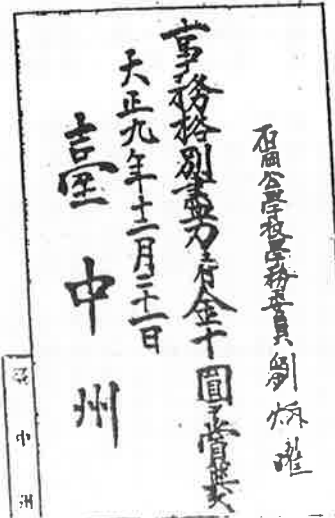 石岡公學校學務委員 劉炳耀
事務格別盡力ニ付金十圓ヲ賞與ス
大正九年十二月二十一日
臺中州
臺中州